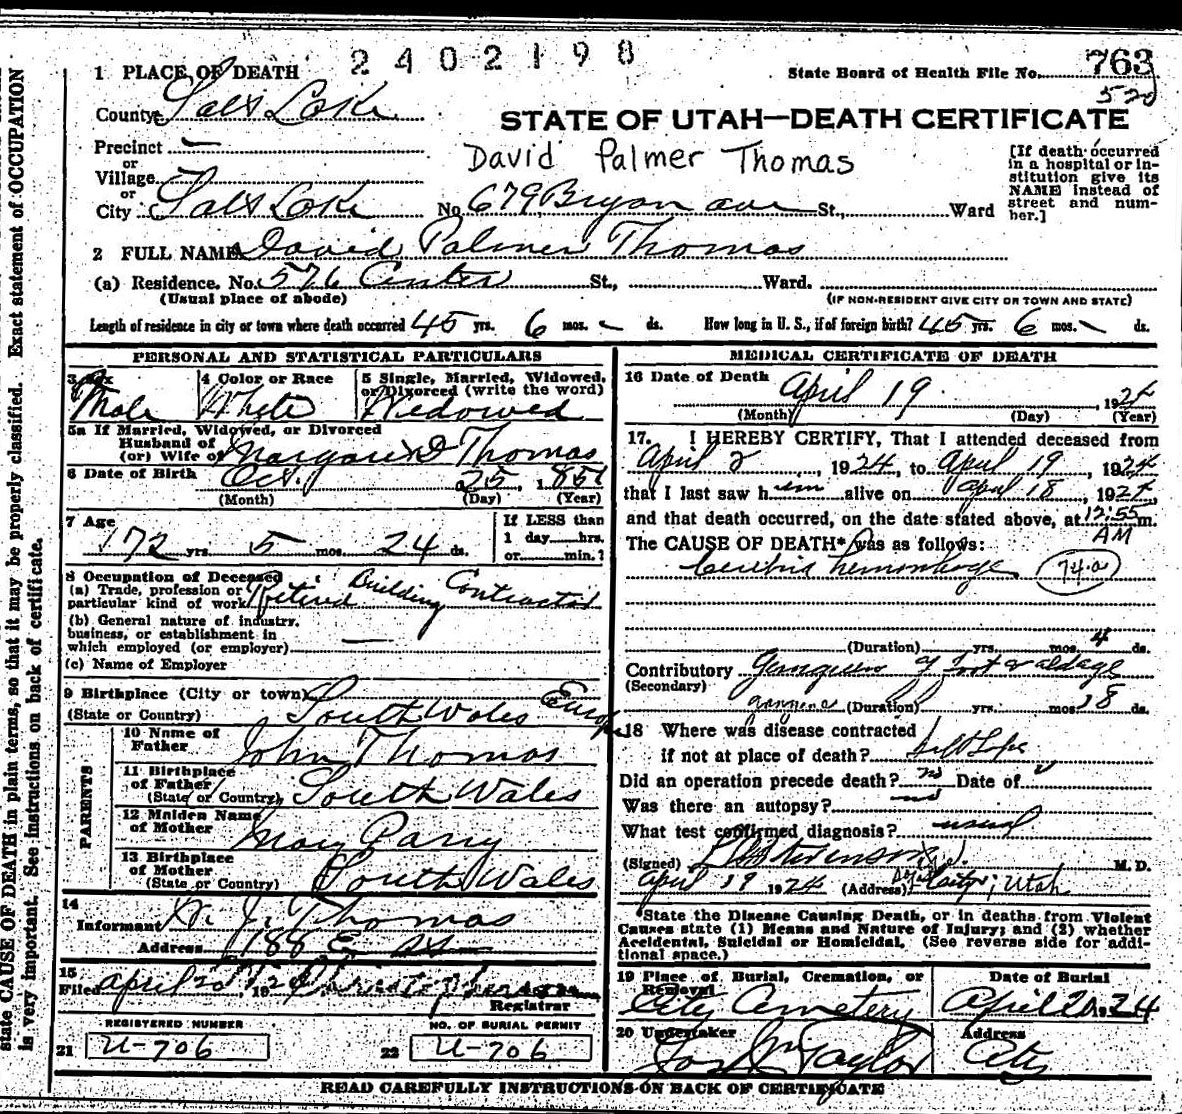 2402198
1 PLACE OF DEATH
State Board of Health File No. 763
520
County Salt Lake
STATE OF UTAH—DEATH CERTIFICATE
Precinct —
or
Village
or
City Salt Lake No. 679 Bryan ave St., Ward
David Palmer Thomas
[If death occurred
in a hospital or in-
stitution give its
NAME instead of
street and num-
ber.]
2 FULL NAME David Palmer Thomas
(a) Residence. No. 576 Center St., Ward.
(Usual place of abode) (IF NON-RESIDENT GIVE CITY OR TOWN AND STATE)
Length of residence in city or town where death occurred 45 yrs. 6 mos. - ds. How long in U. S., if of foreign birth? 45 yrs. 6 mos. - ds.
PERSONAL AND STATISTICAL PARTICULARS
3 Sex
Male
4 Color or Race
White
5 Single, Married, Widowed,
or Divorced (write the word)
Widowed
5a If Married, Widowed, or Divorced
Husband of
(or) Wife of Margaret D Thomas
6 Date of Birth Oct. 25, 1851
(Month) (Day) (Year)
7 Age
72 yrs. 5 mos. 24 ds.
If LESS than
1 day hrs.
or min.?
8 Occupation of Deceased
(a) Trade, profession or
particular kind of work Retired Building Contractor
(b) General nature of industry,
business, or establishment in
which employed (or employer) —
(c) Name of Employer
9 Birthplace (City or town)
(State or Country) South Wales Europe
PARENTS
10 Name of
Father John Thomas
11 Birthplace
of Father
(State or Country) South Wales
12 Maiden Name
of Mother Mary Parry
13 Birthplace
of Mother
(State or Country) South Wales
14
Informant J. Thomas
Address 188 E
15
Filed April 20 1924
Registrar
REGISTERED NUMBER
21 U-706
NO. OF BURIAL PERMIT
22 U-706
MEDICAL CERTIFICATE OF DEATH
16 Date of Death April 19, 1924
(Month) (Day) (Year)
17. I HEREBY CERTIFY, That I attended deceased from
April 2, 1924, to April 19, 1924
that I last saw him alive on April 18, 1924,
and that death occurred, on the date stated above, at 12:55 m.
AM
The CAUSE OF DEATH* was as follows:
Cerebral hemorrhage 74-a
(Duration) yrs. mos. 4 ds.
Contributory Gangrene of foot & old age
(Secondary)
gangrene (Duration) yrs. mos. 18 ds.
18 Where was disease contracted
if not at place of death? Salt Lake
Did an operation precede death? no Date of
Was there an autopsy? no
What test confirmed diagnosis? usual
(Signed) Stevenson M. D.
April 19 1924 (Address) City, Utah
*State the Disease Causing Death, or in deaths from Violent
Causes state (1) Means and Nature of Injury; and (2) whether
Accidental, Suicidal or Homicidal. (See reverse side for addi-
tional space.)
19 Place of Burial, Cremation, or
Removal
City Cemetery
Date of Burial
April 20, 1924
20 Undertaker
Jos Wm Taylor
Address
City
READ CAREFULLY INSTRUCTIONS ON BACK OF CERTIFICATE
state CAUSE OF DEATH in plain terms, so that it may be properly classified. Exact statement of OCCUPATION
is very important. See instructions on back of certificate.